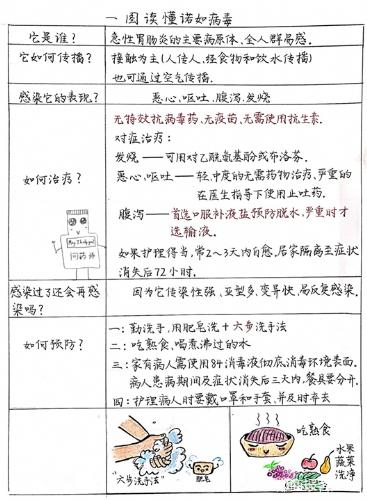 一图读懂诺如病毒
它是谁?
急性胃肠炎的主要病原体、全人群易感。
它如何传播?
接触为主(人传人、经食物和饮水传播)
也可通过空气传播。
感染它的表现?
恶心、呕吐、腹泻、发烧
如何治疗?
无特效抗病毒药、无疫苗、无需使用抗生素.
对症治疗:
发烧——可用对乙酰氨基酚或布洛芬.
恶心、呕吐——轻、中度的无需药物治疗,严重的
在医生指导下使用止吐药.
腹泻——首选口服补液盐预防脱水,严重时才
选输液。
如果护理得当,常2~3天内自愈,居家隔离至症状
消失后72小时.
问药师
感染过了还会再感
染吗?
因为它传染性强、亚型多,变异快,易反复感染.
如何预防?
一:勤洗手,用肥皂洗+六步洗手法
二:吃熟食、喝煮沸过的水
三:家有病人需使用84消毒液彻底消毒环境表面.
病人患病期间及症状消失后三天内,餐具要分开.
四:护理病人时要戴口罩和手套,并及时弃去
"六步洗手法"
肥皂
吃熟食
水果
蔬菜
洗净